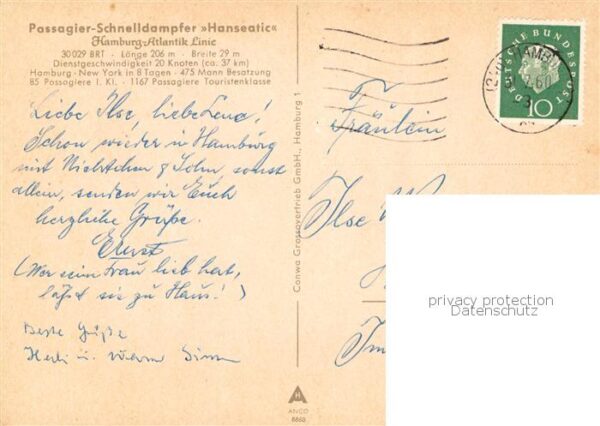 Passagier-Schnelldampfer »Hanseatic«
Hamburg-Atlantik Linie
30029 BRT · Länge 206 m · Breite 29 m
Dienstgeschwindigkeit 20 Knoten (ca. 37 km)
Hamburg-New York in 8 Tagen · 475 Mann Besatzung
85 Passagiere I. Kl. · 1167 Passagiere Touristenklasse
Liebe Ilse, liebe Lene!
Schon wieder in Hamburg
mit Nichtchen & Sohn, sonst
allein, senden wir Euch
herzliche Grüße.
Ernst
(Wer sein Frau lieb hat,
läßt sie zu Haus!)
Beste Grüße
u.
Conwa Grossovertrieb GmbH., Hamburg 1
ANCO
8868
DEUTSCHE BUNDESPOST
10
HAMBU
Fräulein
Ilse
privacy protection
Datenschutz